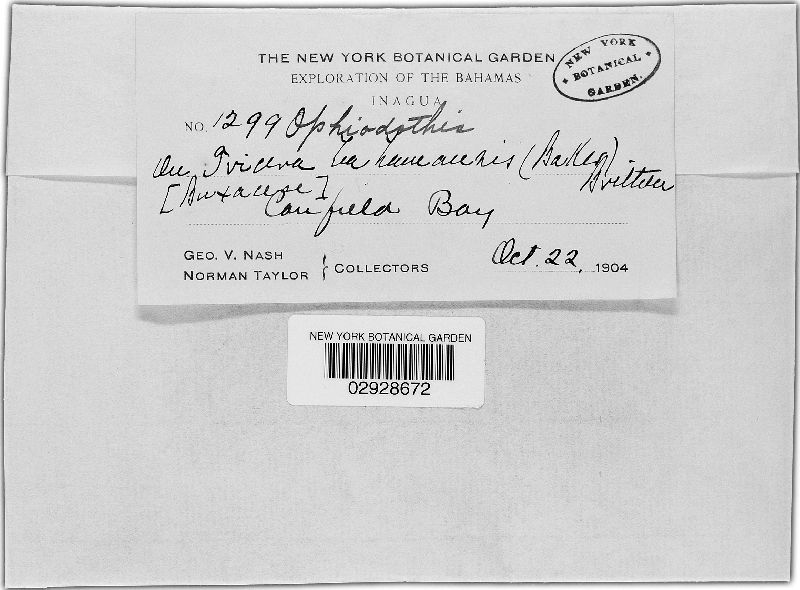 THE NEW YORK BOTANICAL GARDEN
EXPLORATION OF THE BAHAMAS
INAGUA
NEW YORK
BOTANICAL
GARDEN.
NO. 1299 Ophiodothis
On Tricera bahamensis (Baker) Britton
[Buxaceae]
Canfield Bay
GEO. V. NASH
NORMAN TAYLOR } COLLECTORS
Oct. 22, 1904
NEW YORK BOTANICAL GARDEN
02928672